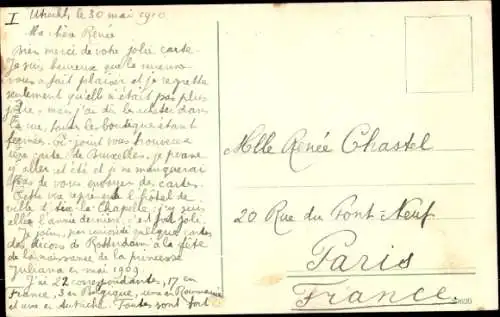 I Utrecht, le 30 mai 1910
Ma chère Renée
Bien merci de votre jolie carte.
Je suis heureux que le
vous a fait plaisir et je regrette
seulement qu'elle n'était pas plus
jolie, mais j'ai dû l'acheter dans
la rue, toutes les boutiques étant
fermées. Ci-joint vous trouverez
une carte de Bruxelles, je pense
y aller cet été et je ne manquerai
pas de vous envoyer des cartes.
Cette vue représente l'hôtel de
ville d'Aix-la-Chapelle, j'y suis
allé l'année dernière, c'est fort joli.
Je joins, par curiosité quelques cartes
des décors de Rotterdam à la fête
de la naissance de la princesse
Juliana en mai 1909.
J'ai 22 correspondantes, 17 en
France, 3 en Belgique, une en Roumanie
et une en Autriche. Toutes sont fort
Mlle Renée Chastel
20 Rue du Pont-Neuf
Paris
France